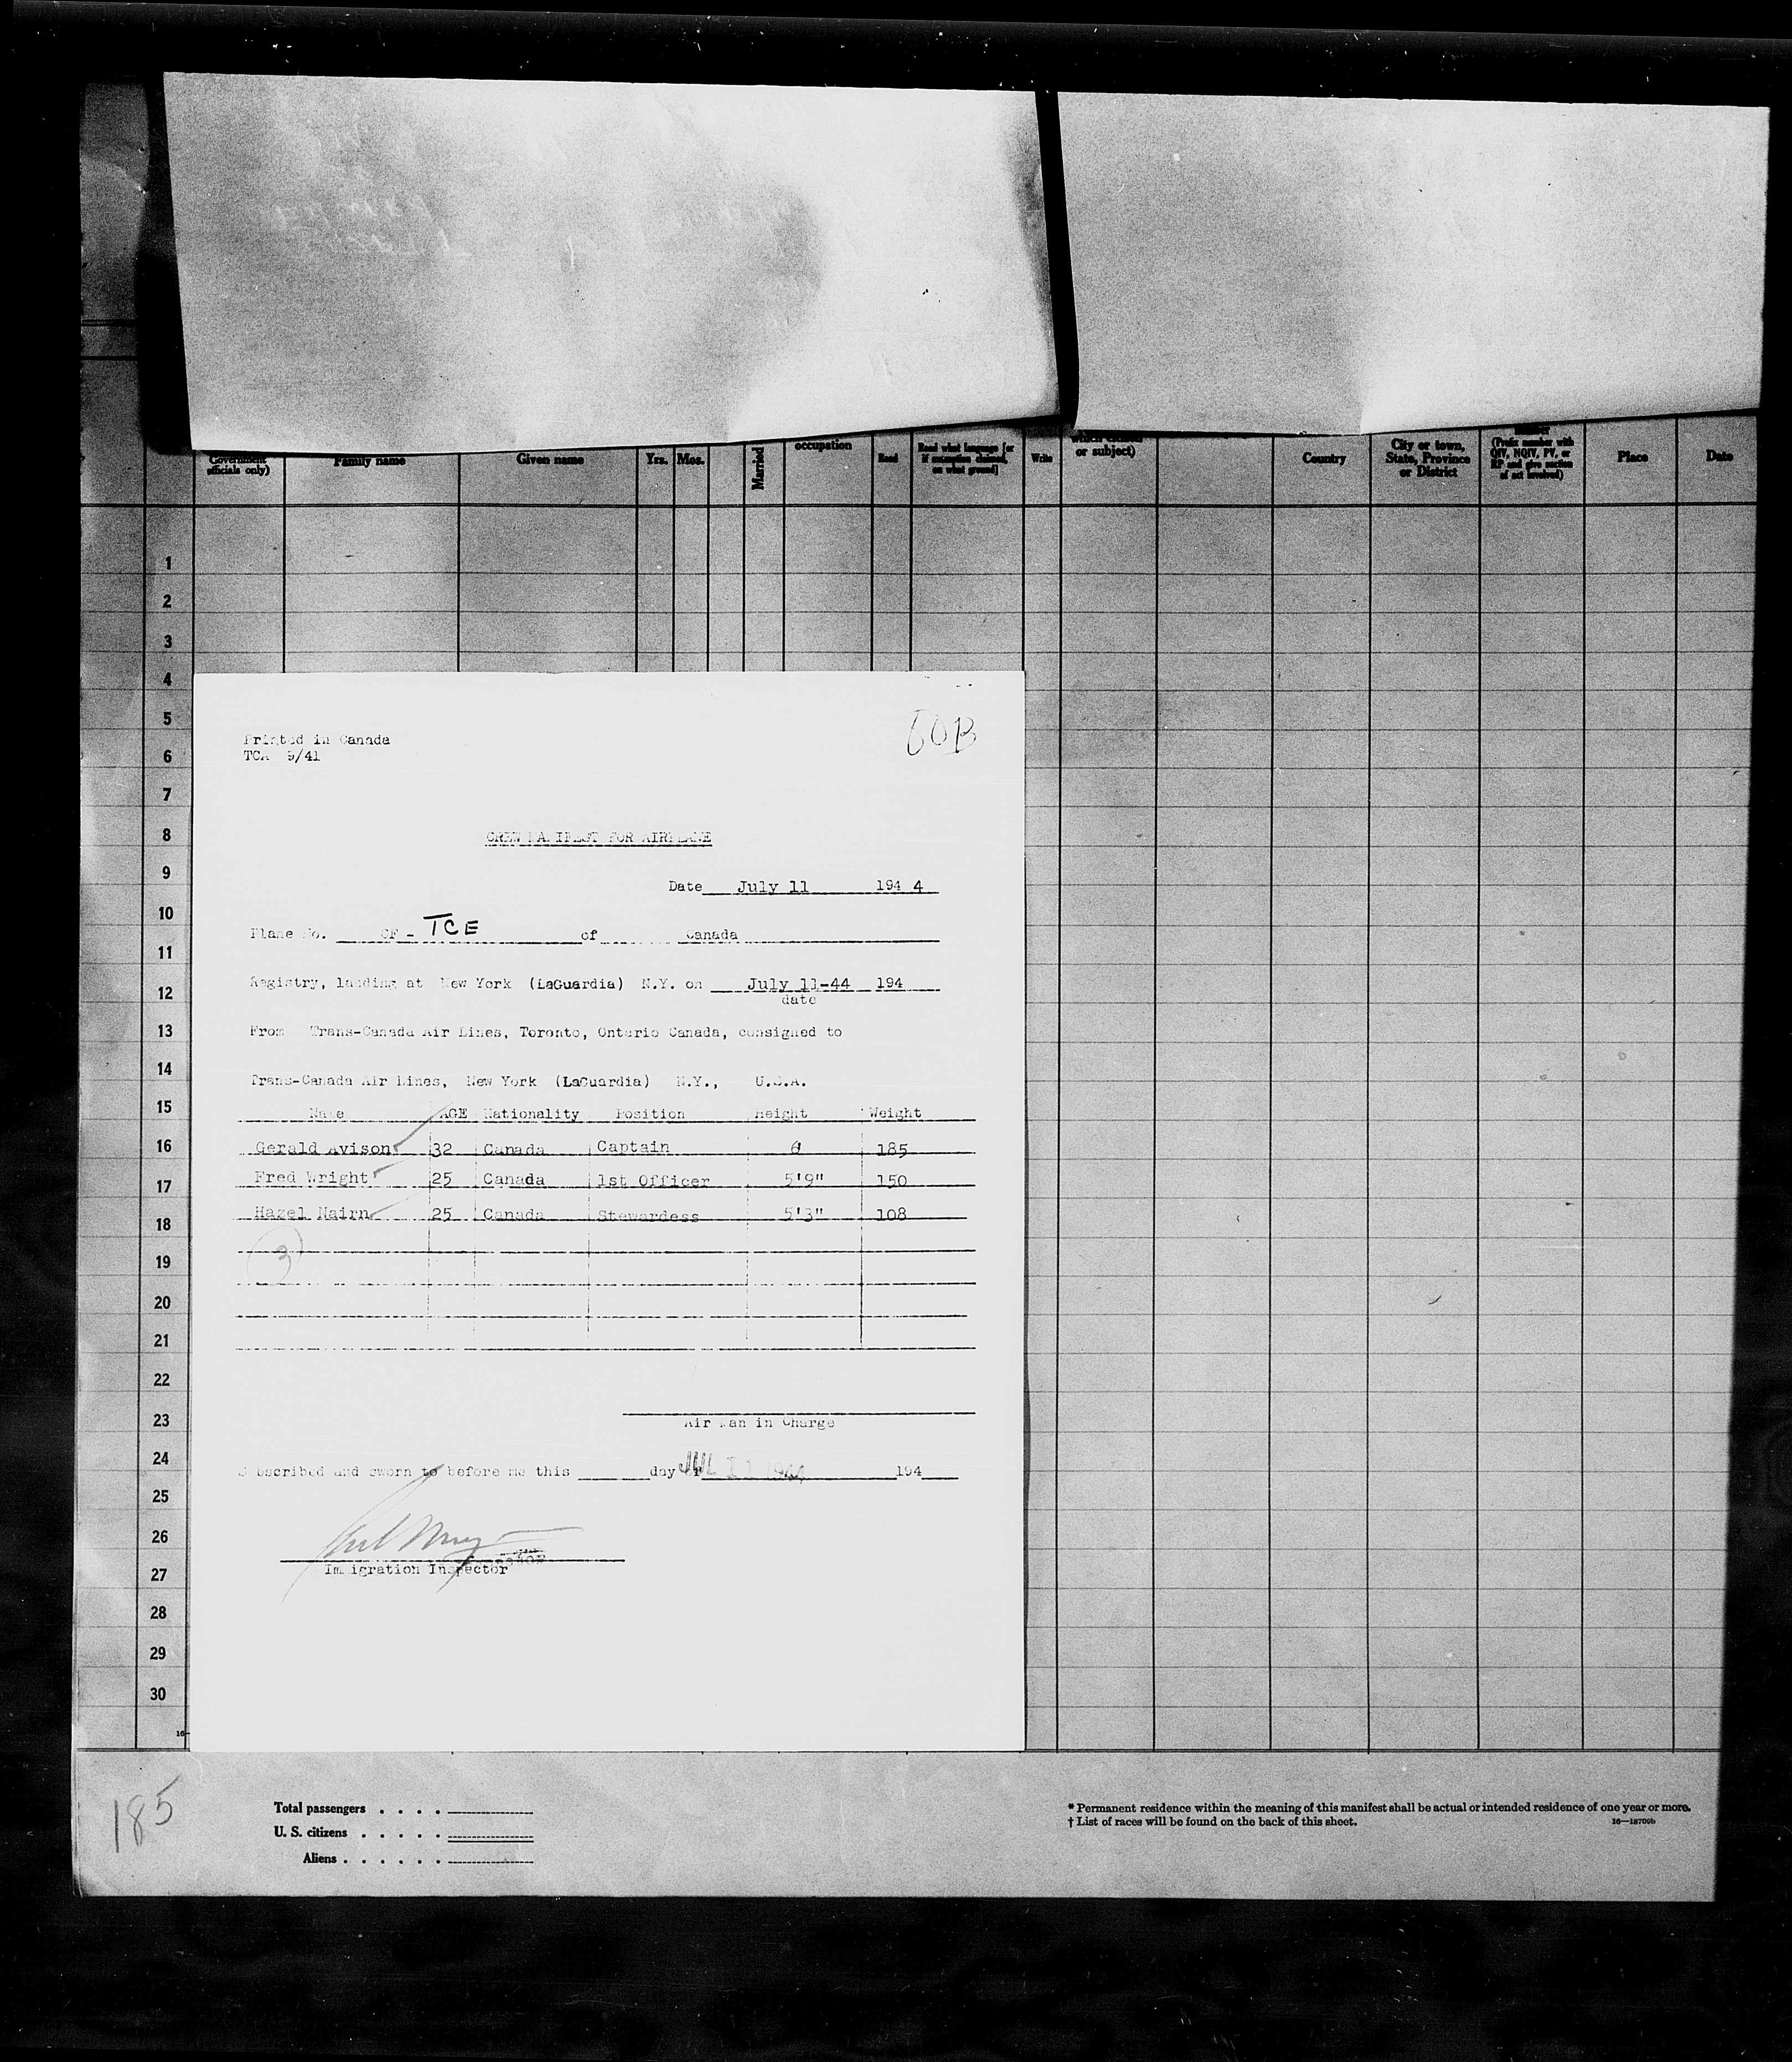 officials only)
Family name
Given name
Yrs. Mos.
Married
occupation
Read
Read what language [or
if exemption claimed,
on what ground]
Write
or subject)
Country
City or town,
State, Province
or District
(Prefix number with
QIV, NQIV, PV, or
RP and give section
of act involved)
Place
Date
1
2
3
4
5
6
7
8
9
10
11
12
13
14
15
16
17
18
19
20
21
22
23
24
25
26
27
28
29
30
16
60B
Printed in Canada
TCA 9/41
CREW MANIFEST FOR AIRPLANE
Date July 11 194 4
Plane No. CF - TCE of Canada
Registry, landing at New York (LaGuardia) N.Y. on July 11-44 194
date
From Trans-Canada Air Lines, Toronto, Ontario Canada, consigned to
Trans-Canada Air Lines, New York (LaGuardia) N.Y., U.S.A.
Name AGE Nationality Position Height Weight
Gerald Avison 32 Canada Captain 6 185
Fred Wright 25 Canada 1st Officer 5'9" 150
Hazel Nairn 25 Canada Stewardess 5'3" 108
3
Air Man in Charge
Subscribed and sworn to before me this day of JUL 11 1944 194
Immigration Inspector
185
Total passengers . . . .
U. S. citizens . . . . .
Aliens . . . . . .
* Permanent residence within the meaning of this manifest shall be actual or intended residence of one year or more.
† List of races will be found on the back of this sheet.
16—18700b